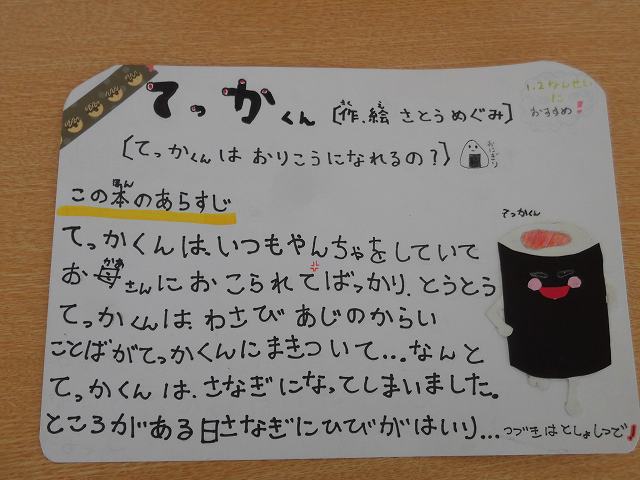 てっかくん [作.絵 さとうめぐみ]
1.2ねんせい
に
おすすめ!
[てっかくんは おりこうになれるの?]
おにぎり
この本のあらすじ
てっかくん
てっかくんは、いつもやんちゃをしていて
お母さんにおこられてばっかり、とうとう
てっかくんは、わさびあじのからい
ことばがてっかくんにまきついて...なんと
てっかくんは、さなぎになってしまいました。
ところがある日さなぎにひびがはいり...
つづきはとしょしつで!